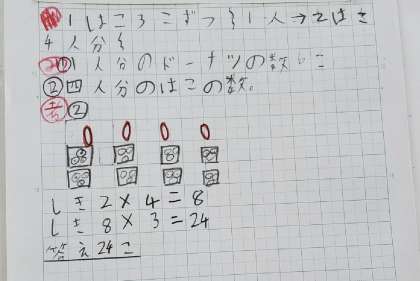 1はこ3こずつ 1人→2はこ
4人分
① 1人分のドーナツの数
②四人分のはこの数。
考②
しき 2×4=8
しき 8×3=24
答え24こ